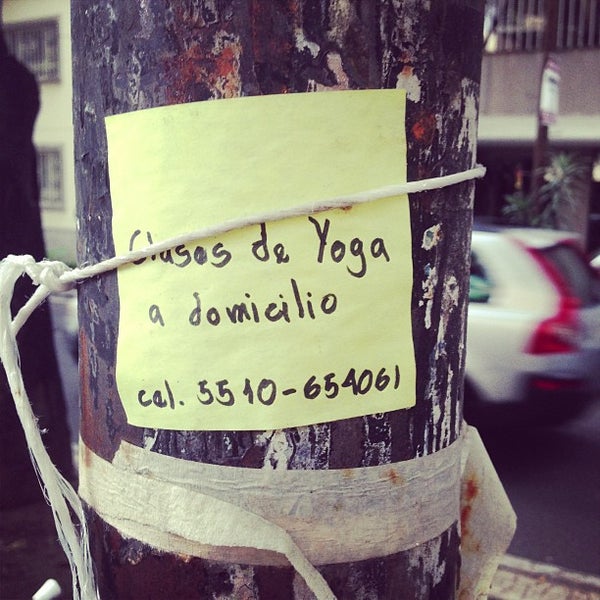 Clases de Yoga
a domicilio
cel. 5510-654061